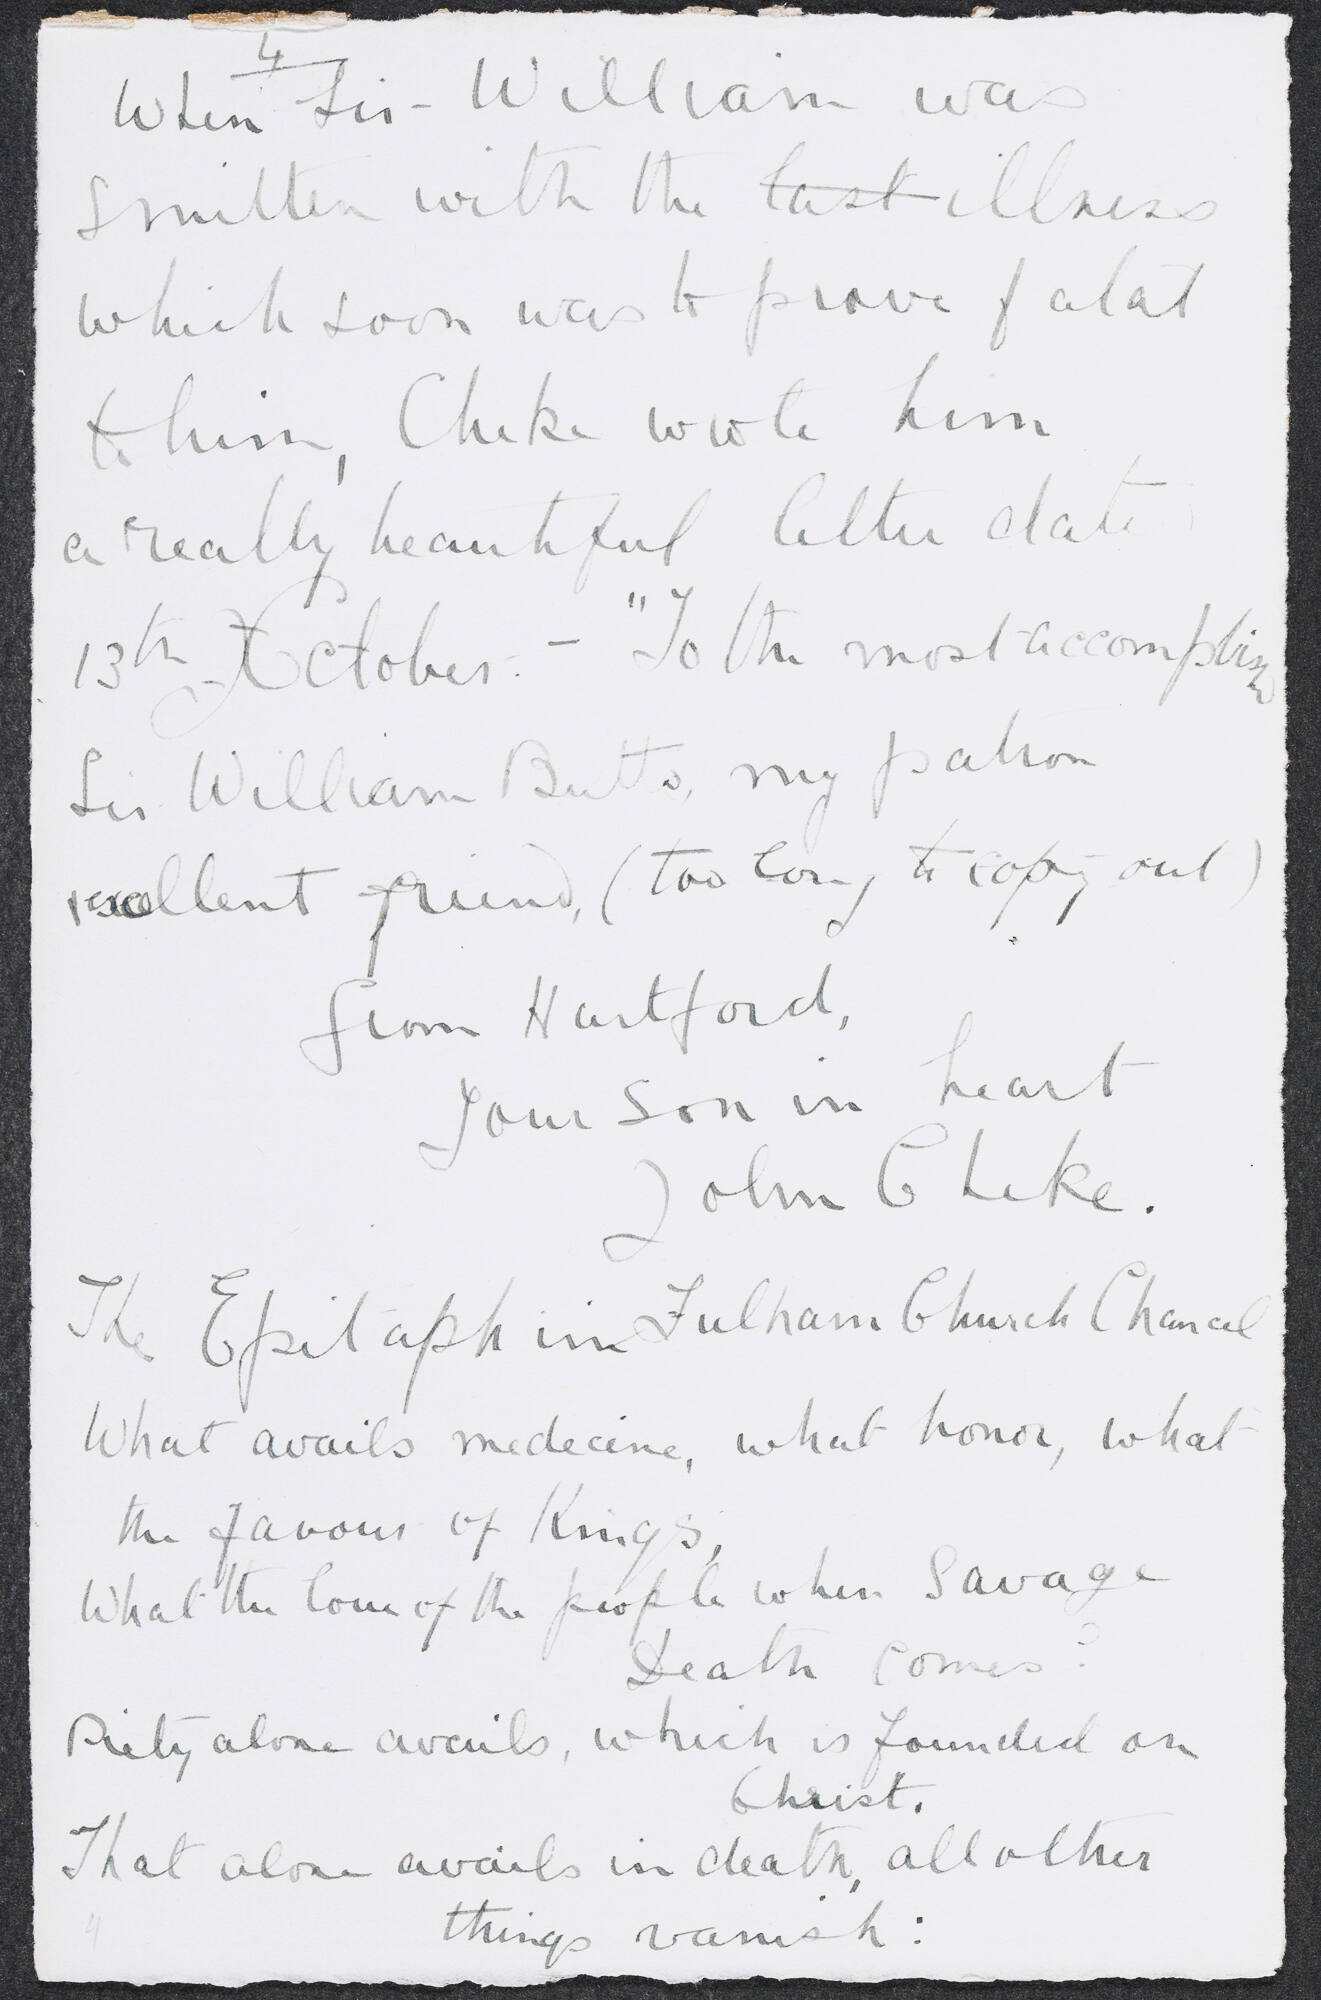 4
When Sir - William was
smitten with the last illness
which soon was to prove fatal
to him, Cheke wrote him
a really beautiful letter date
13th October. - "To the most accomplish
Sir William Butts, my patron
excellent friend, (too long to copy out)
from Hartford,
Your son in heart
John Cheke.
The Epitaph in Fulham Church Chancel
What avails medecine, what honor, what
the favour of Kings,
What the love of the people when Savage
Death comes?
Piety alone avails, which is founded on
Christ.
That alone avails in death, all other
things vanish:
4